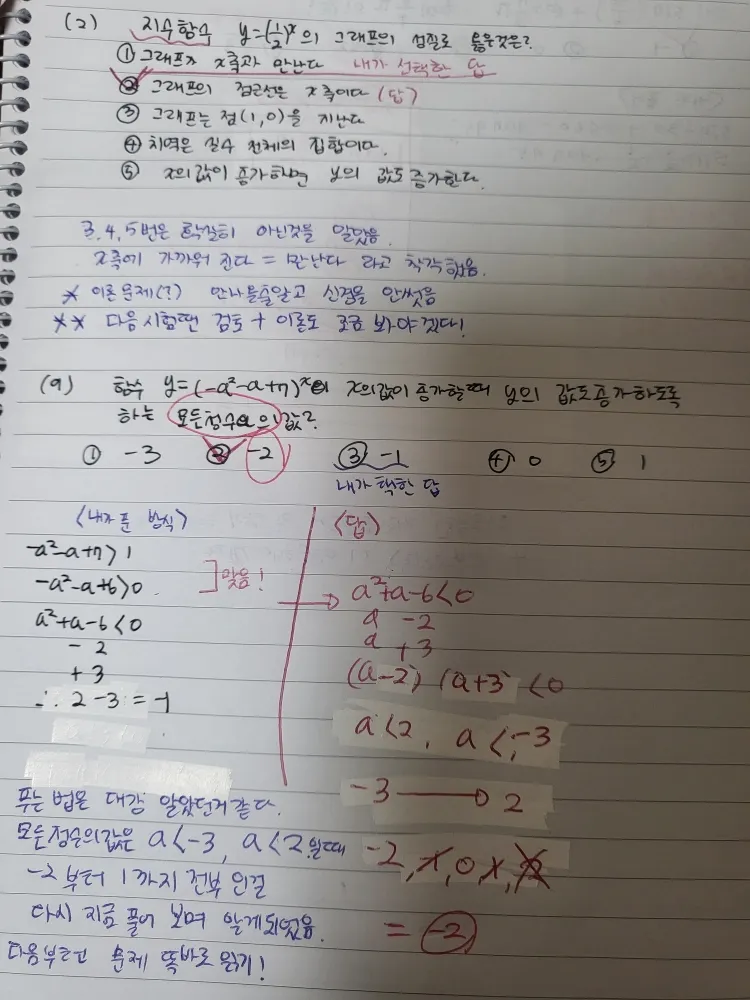 (2) 지수함수 y=(1/2)^x의 그래프의 성질로 옳은것은?
① 그래프가 x축과 만난다 내가 선택한 답
② 그래프의 점근선은 x축이다 (답)
③ 그래프는 점(1,0)을 지난다
④ 치역은 실수 전체의 집합이다.
⑤ x의값이 증가하면 y의 값도 증가한다.
3,4,5번은 확실히 아닌것을 알았음
x축에 가까워 진다 = 만난다 라고 착각했음.
* 이론문제(?) 만나는줄알고 신경을 안썼음
** 다음시험땐 검토 + 이론도 조금 봐야겠다!
(9) 함수 y=(-a²-a+7)^x에 x의값이 증가할때 y의 값도증가하도록
하는 모든정수a의값?
① -3 ② -2 ③ -1 ④ 0 ⑤ 1
내가 택한 답
<내가 푼 방식>
-a²-a+7>1
-a²-a+6>0
맞음!
a²+a-6<0
- 2
+ 3
∴ 2-3=-1
<답>
→ a²+a-6<0
a -2
a +3
(a-2)(a+3)<0
a<2, a<-3
-3 → 2
-2, -1, 0, 1, 2
= -2
푸는 법은 대강 알았던거같다.
모든정수의값은 a<-3, a<2일때
-2부터 1까지 전부 인걸
다시 지금 풀어 보며 알게되었음.
다음부턴 문제 똑바로 읽기!